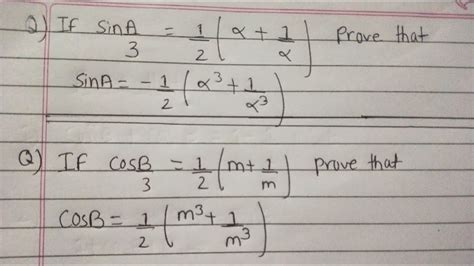 Q) If sinA/3 = 1/2 (α + 1/α) Prove that
sinA = - 1/2 (α³ + 1/α³)
Q) If cosB/3 = 1/2 (m + 1/m) Prove that
cosB = 1/2 (m³ + 1/m³)